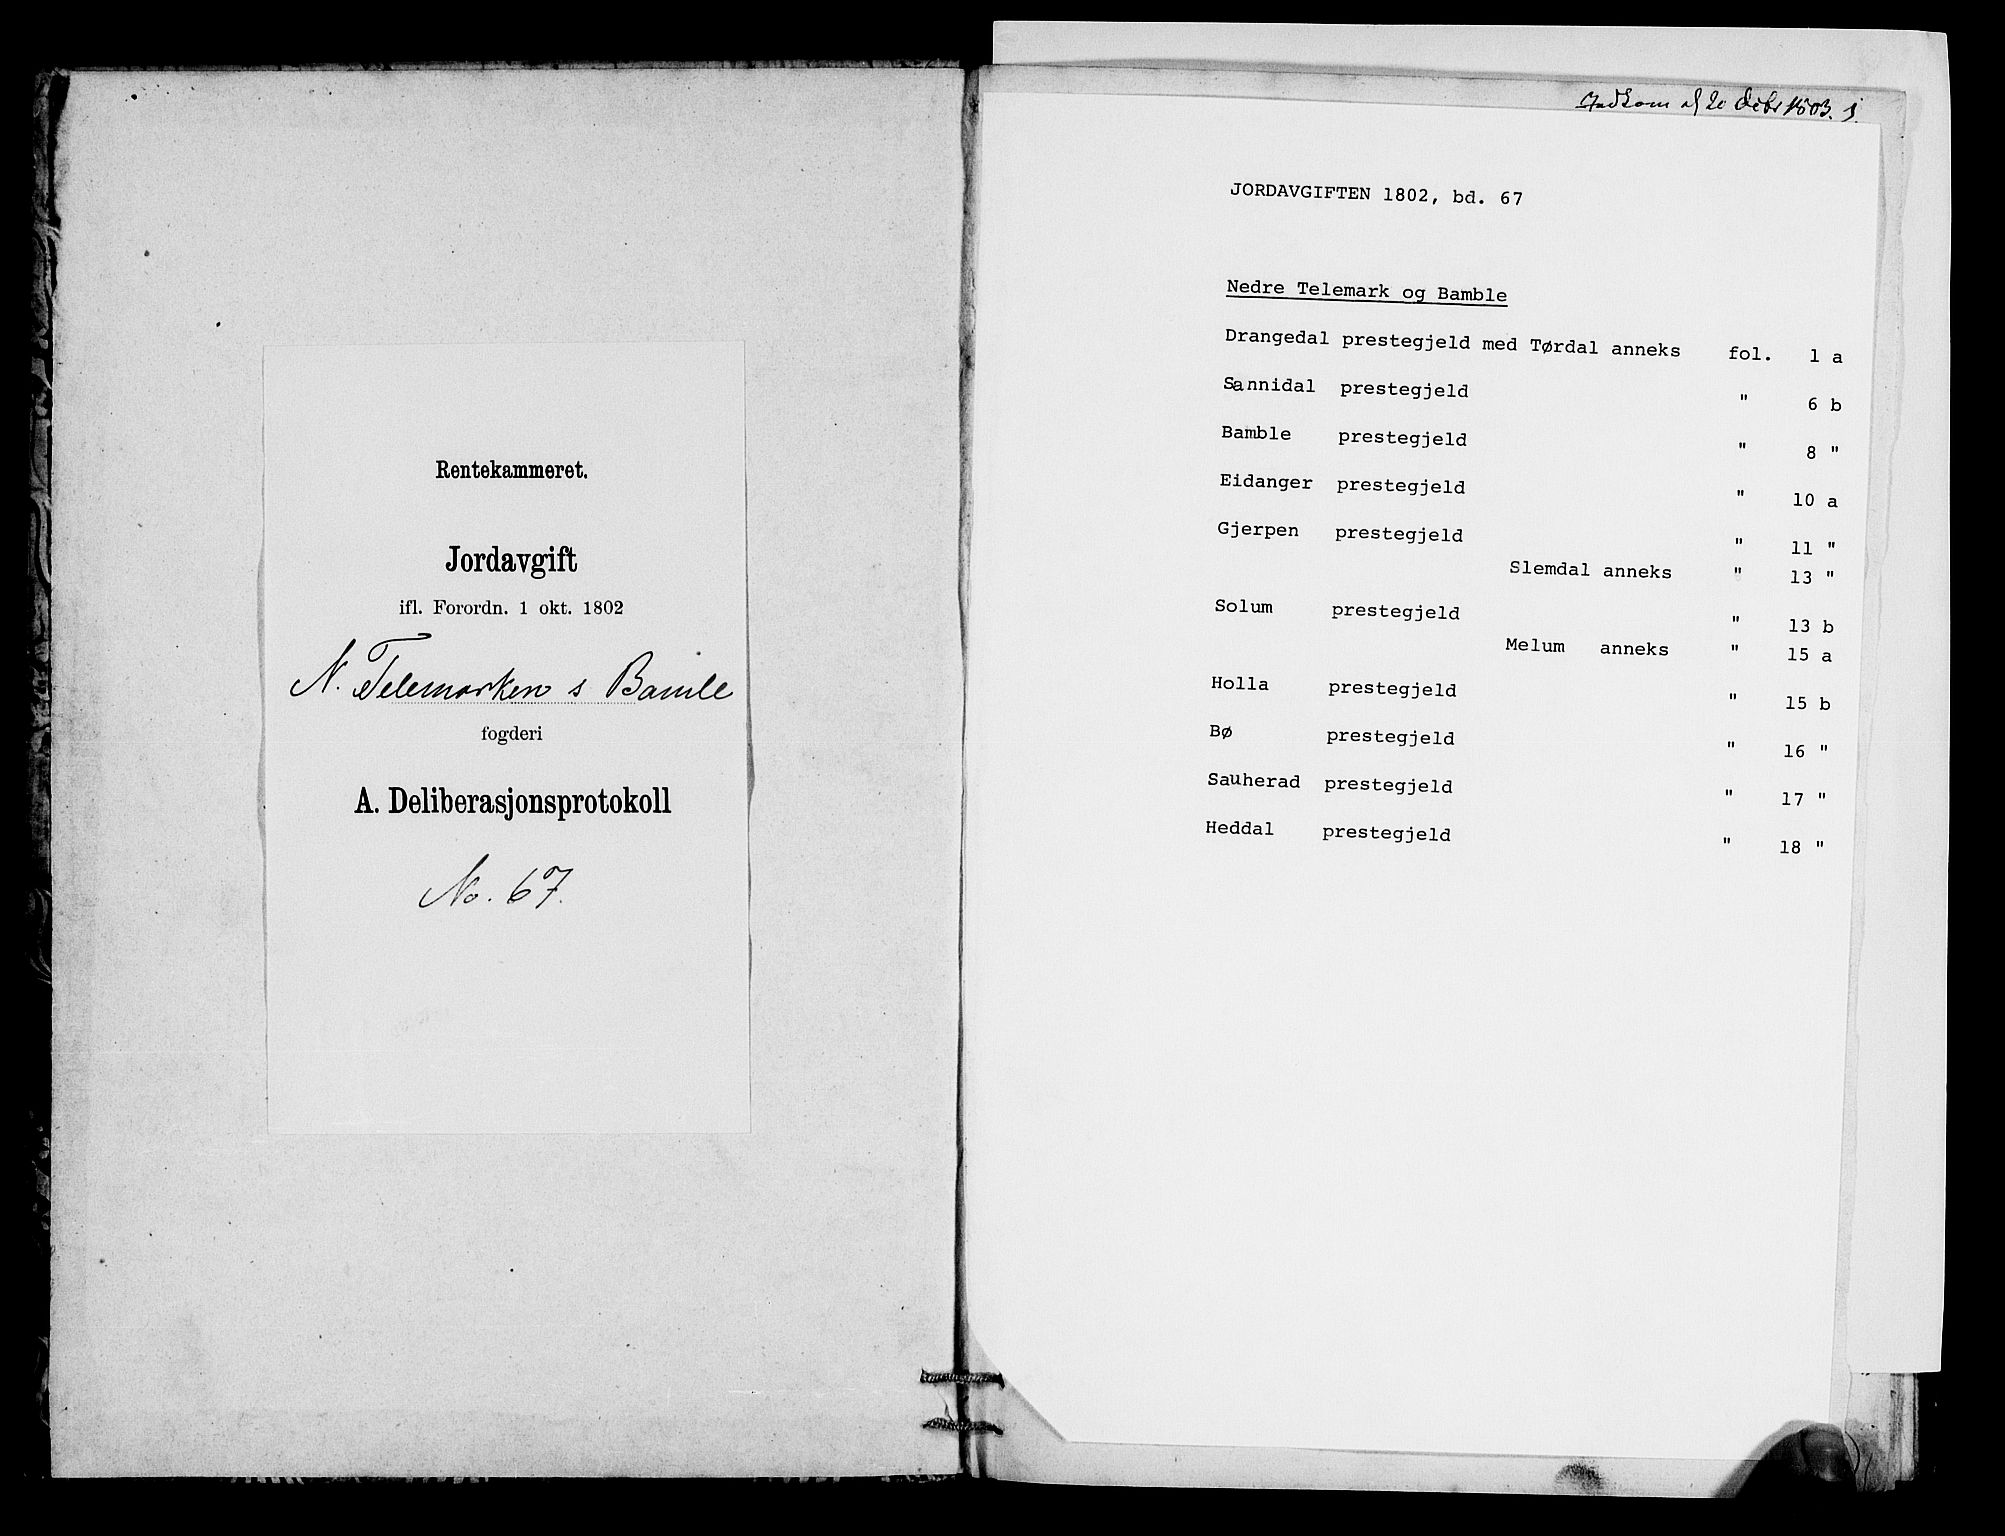 Rentekammeret.
Jordavgift
ifl. Forordn. 1 okt. 1802
N. Telemarken s Bamle
fogderi
A. Deliberasjonsprotokoll
No. 67.
1803. 1.
JORDAVGIFTEN 1802, bd. 67
Nedre Telemark og Bamble
Drangedal prestegjeld med Tørdal anneks fol. 1 a
Sannidal prestegjeld " 6 b
Bamble prestegjeld " 8 "
Eidanger prestegjeld " 10 a
Gjerpen prestegjeld " 11 "
Slemdal anneks " 13 "
Solum prestegjeld " 13 b
Melum anneks " 15 a
Holla prestegjeld " 15 b
Bø prestegjeld " 16 "
Sauherad prestegjeld " 17 "
Heddal prestegjeld " 18 "